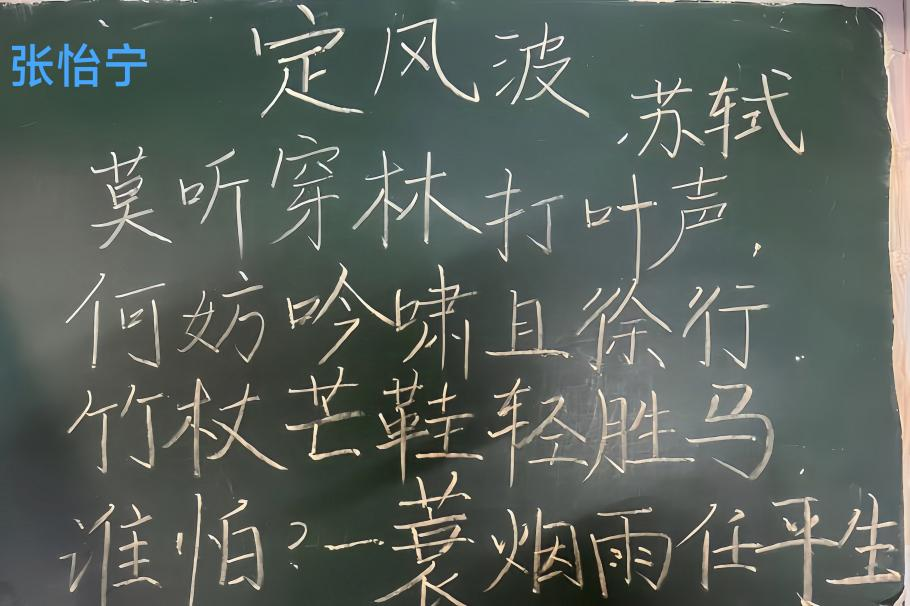 张怡宁
定风波
苏轼
莫听穿林打叶声.
何妨吟啸且徐行.
竹杖芒鞋轻胜马.
谁怕?一蓑烟雨任平生